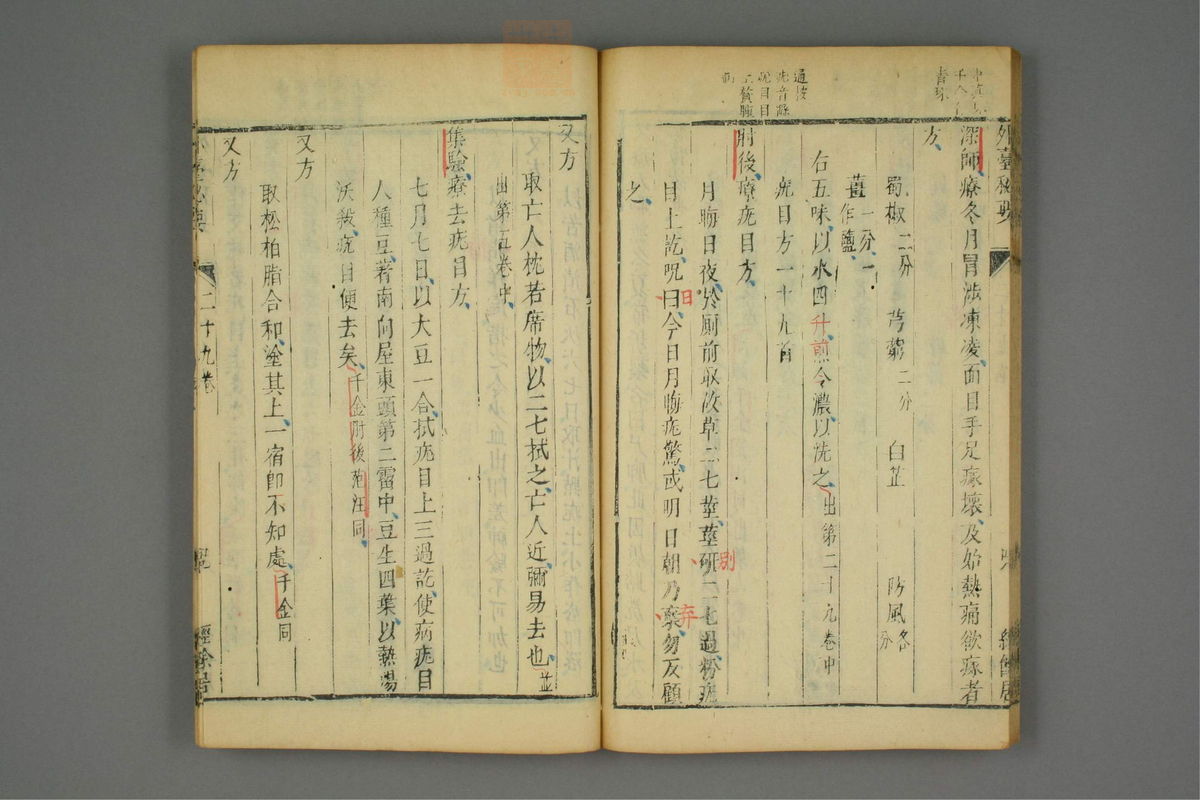 深師療冬月冒涉凍凌面目手足瘃壞及始熱痛欲瘃者
方
蜀椒二分 芎藭二分 白芷 防風各分
薑一分一作鹽
右五味以水四升煎令濃以洗之出第二十九卷中
疣目方一十九首
肘後療疣目方
月晦日夜於厠前取故草二七莖莖研二七過粉疣
目上訖呪曰今日月晦疣驚或明日朝乃棄勿反顧
之
曰
別
弃
又方
取亡人枕若席物以二七拭之亡人近彌易去也並
出第五卷中
集驗療去疣目方
七月七日以大豆一合拭疣目上三過訖使病疣目
人種豆著南向屋東頭第二霤中豆生四葉以熱湯
沃殺疣目便去矣千金肘後范汪同
又方
取松柏脂合和塗其上一宿卽不知處千金同
又方
二十九卷
經餘居